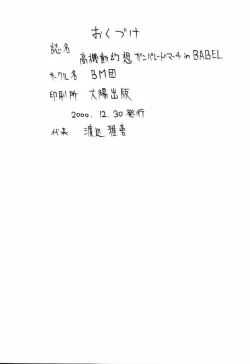 おくづけ
誌名
高機動幻想ガンパレードマーチ in BABEL
サークル名 BM団
印刷所 大陽出版
2000.12.30発行
代表 渡辺雅吾